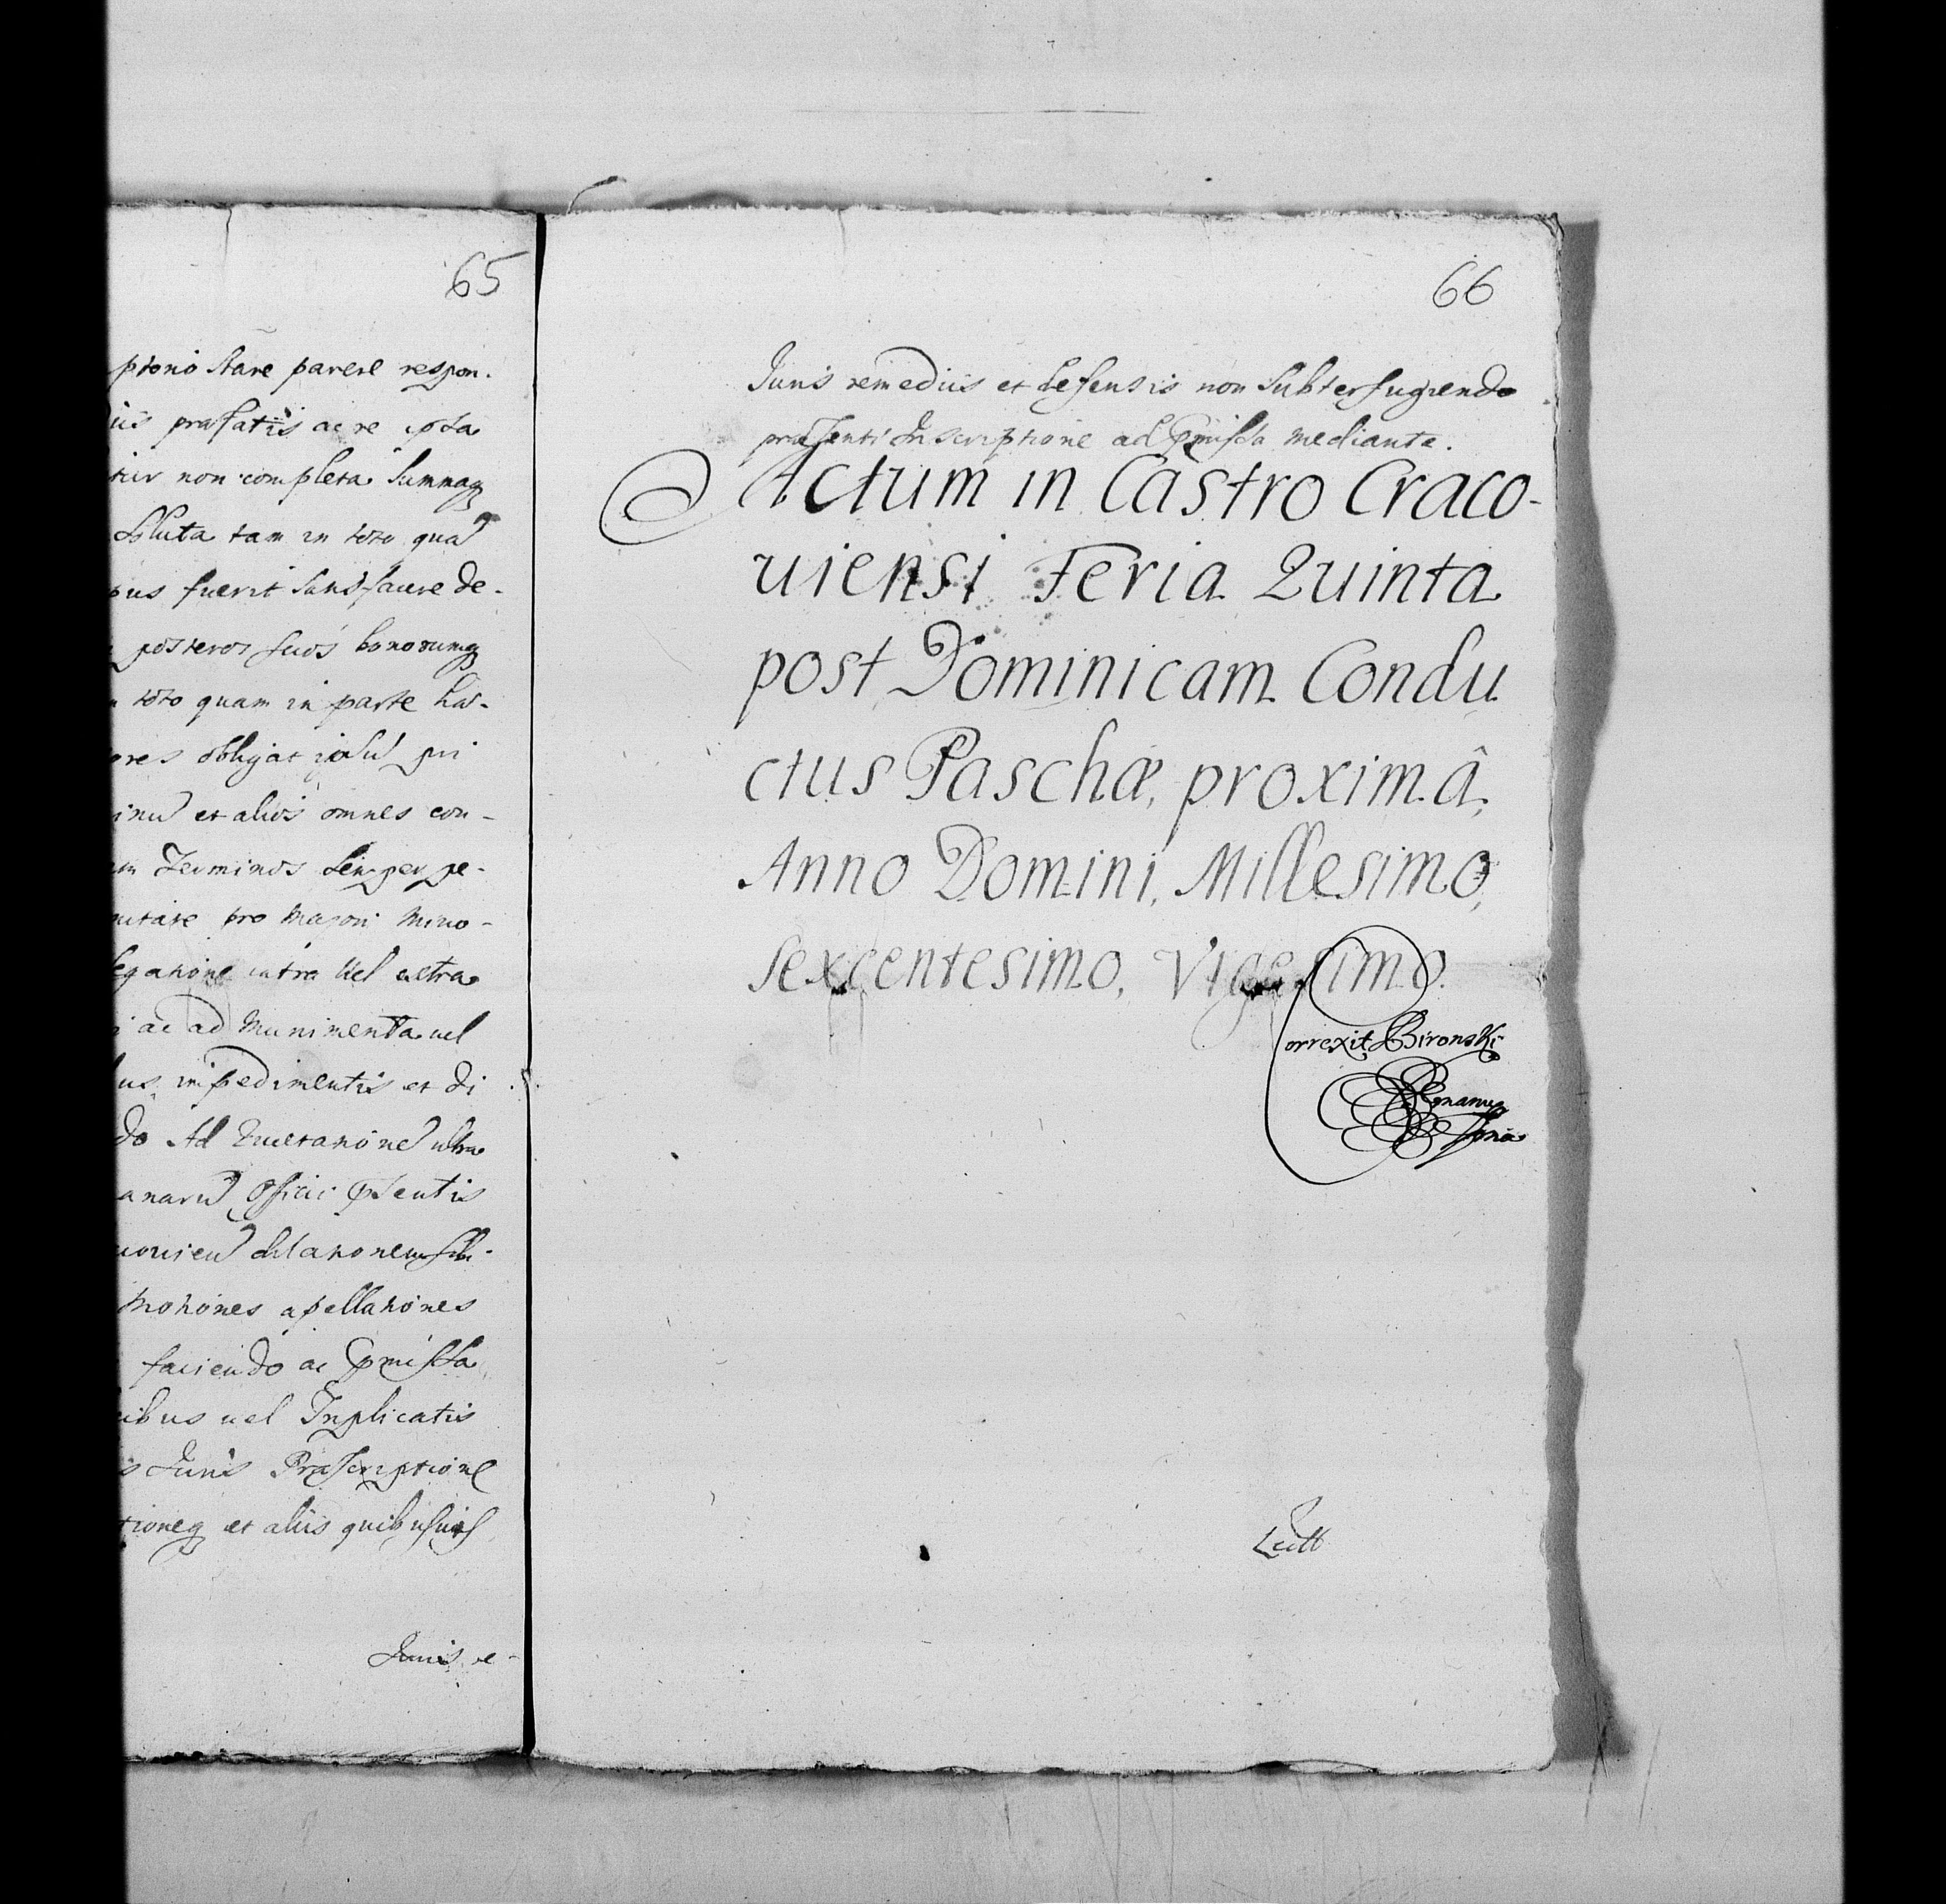 65
ptorio stare parere respon-
iis præfatis ac re ipsa
tur non completa summaq
soluta tam in toto qua
pus fuerit satisfacere de-
posteros suos bonorumq
toto quam in parte hæ-
ores obligat ipsu pri
et alios omnes con-
m Terminos semper pe-
putare pro Majori Mino-
legatione intra vel extra
i ac ad Munimenta vel
us impedimentis et di
do Ad Quietatione ultra
Officii pñtis
dilationem sibi
Motiones apellationes
faciendo ac pmissa
ibus vel Inplicatis
s Juris Præscriptione
tioneq et aliis quibusuis
Juris re-
66
Juris remediis et defensis non subterfugiendo
præsenti Inscriptione ad pmissa mediante.
Actum in Castro Craco-
uiensi Feria Quinta
post Dominicam Condu
ctus Paschæ, proximâ,
Anno Domini, Millesimo,
Sexcentesimo, Vigesimo.
Correxit Bironski
manu
Lectt